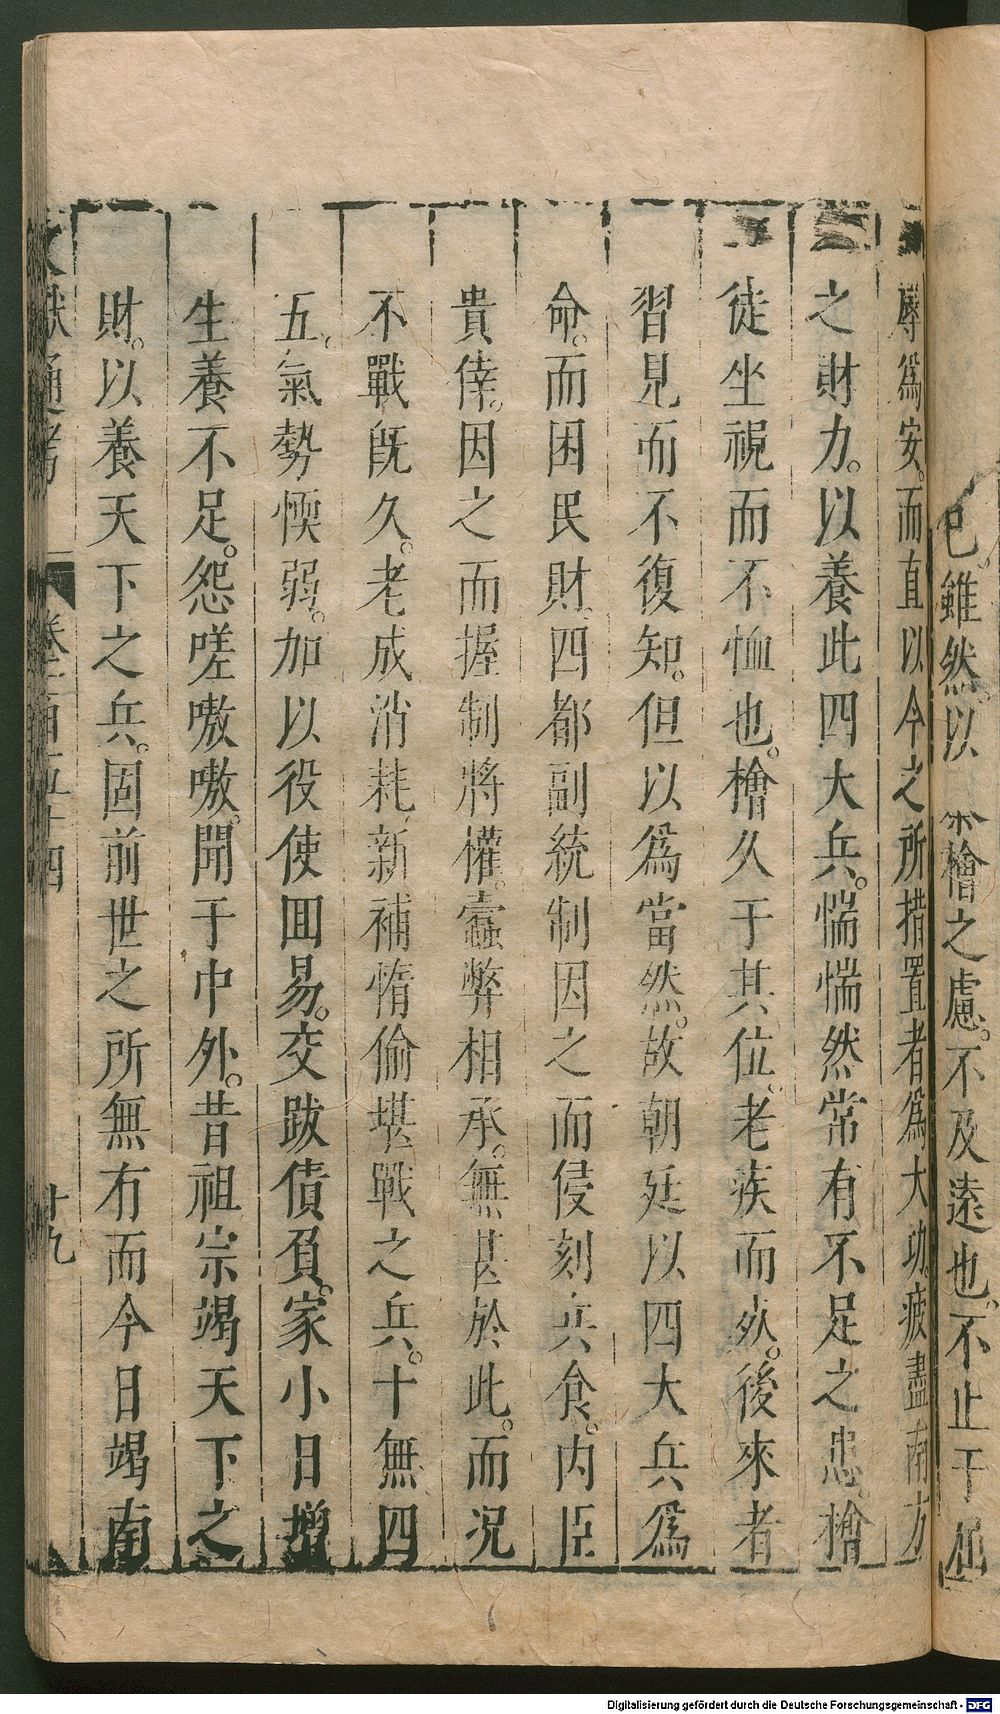 已雖然以 檜之慮不及遠也不止于
辱爲安而直以今之所措置者爲大功疲盡南方
之財力。以養此四大兵。惴惴然常有不足之患檜
徒坐視而不恤也。檜久于其位。老疾而死。後來者
習見而不復知。但以爲當然。故朝廷以四大兵爲
命。而困民財四都副統制因之而侵刻兵食。内臣
貴倖。因之而握制將權。蠧弊相承。無甚於此。而况
不戰旣久。老成消耗新補惰偷堪戰之兵。十無四
五。氣勢愞弱。加以役使回易。交跋債負。家小日增
生養不足。怨嗟嗷嗷。聞于中外。昔祖宗竭天下之
財。以養天下之兵。固前世之所無有而今日竭南
文獻通考 卷一百五十四 廿九
Digitalisierung gefördert durch die Deutsche Forschungsgemeinschaft - DFG